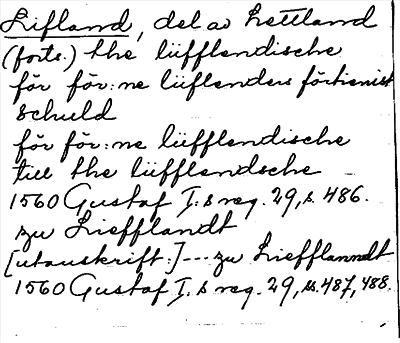 Lifland, del av Lettland
(forts.) the lüfflendische
för för:ne lüflenders förtienist
schuld
för för:ne lüfflendische
till the lüfflendsche
1560 Gustaf I:s reg. 29, s. 486.
zu Liefflandt
[utanskrift:] --- zu Liefflanndt
1560 Gustaf I.s reg. 29, ss. 487, 488.